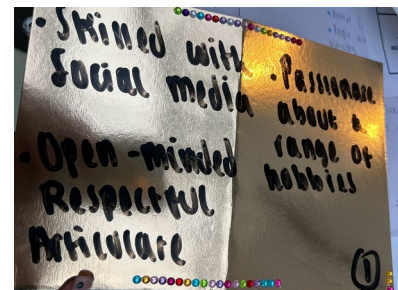 • Skilled with
Social media
• Open-minded
Respectful
Articulate
• Passionate
about a
range of
hobbies
1